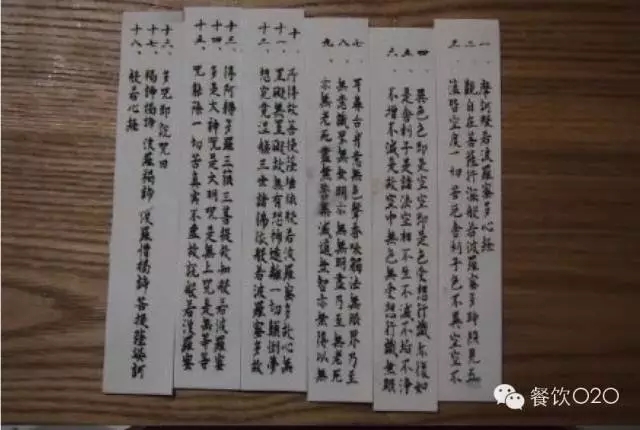 一、摩訶般若波羅蜜多心経
二、觀自在菩薩行深般若波羅蜜多時照見五
三、蘊皆空度一切苦厄舍利子色不異空空不
四、異色色即是空空即是色受想行識亦復如
五、是舍利子是諸法空相不生不滅不垢不淨
六、不增不減是故空中無色無受想行識無眼
七、耳鼻舌身意無色聲香味觸法無眼界乃至
八、無意識界無無明亦無無明盡乃至無老死
九、亦無老死盡無苦集滅道無智亦無得以無
十、所得故菩提薩埵依般若波羅蜜多故心無
十一、罣礙無罣礙故無有恐怖遠離一切顛倒夢
十二、想究竟涅槃三世諸佛依般若波羅蜜多故
十三、得阿耨多羅三藐三菩提故知般若波羅蜜
十四、多是大神咒是大明咒是無上咒是無等等
十五、咒能除一切苦真實不虛故說般若波羅蜜
十六、多咒即説咒曰
十七、揭諦揭諦 波羅揭諦 波羅僧揭諦 菩提薩婆訶
十八、般若心経
餐饮O2O